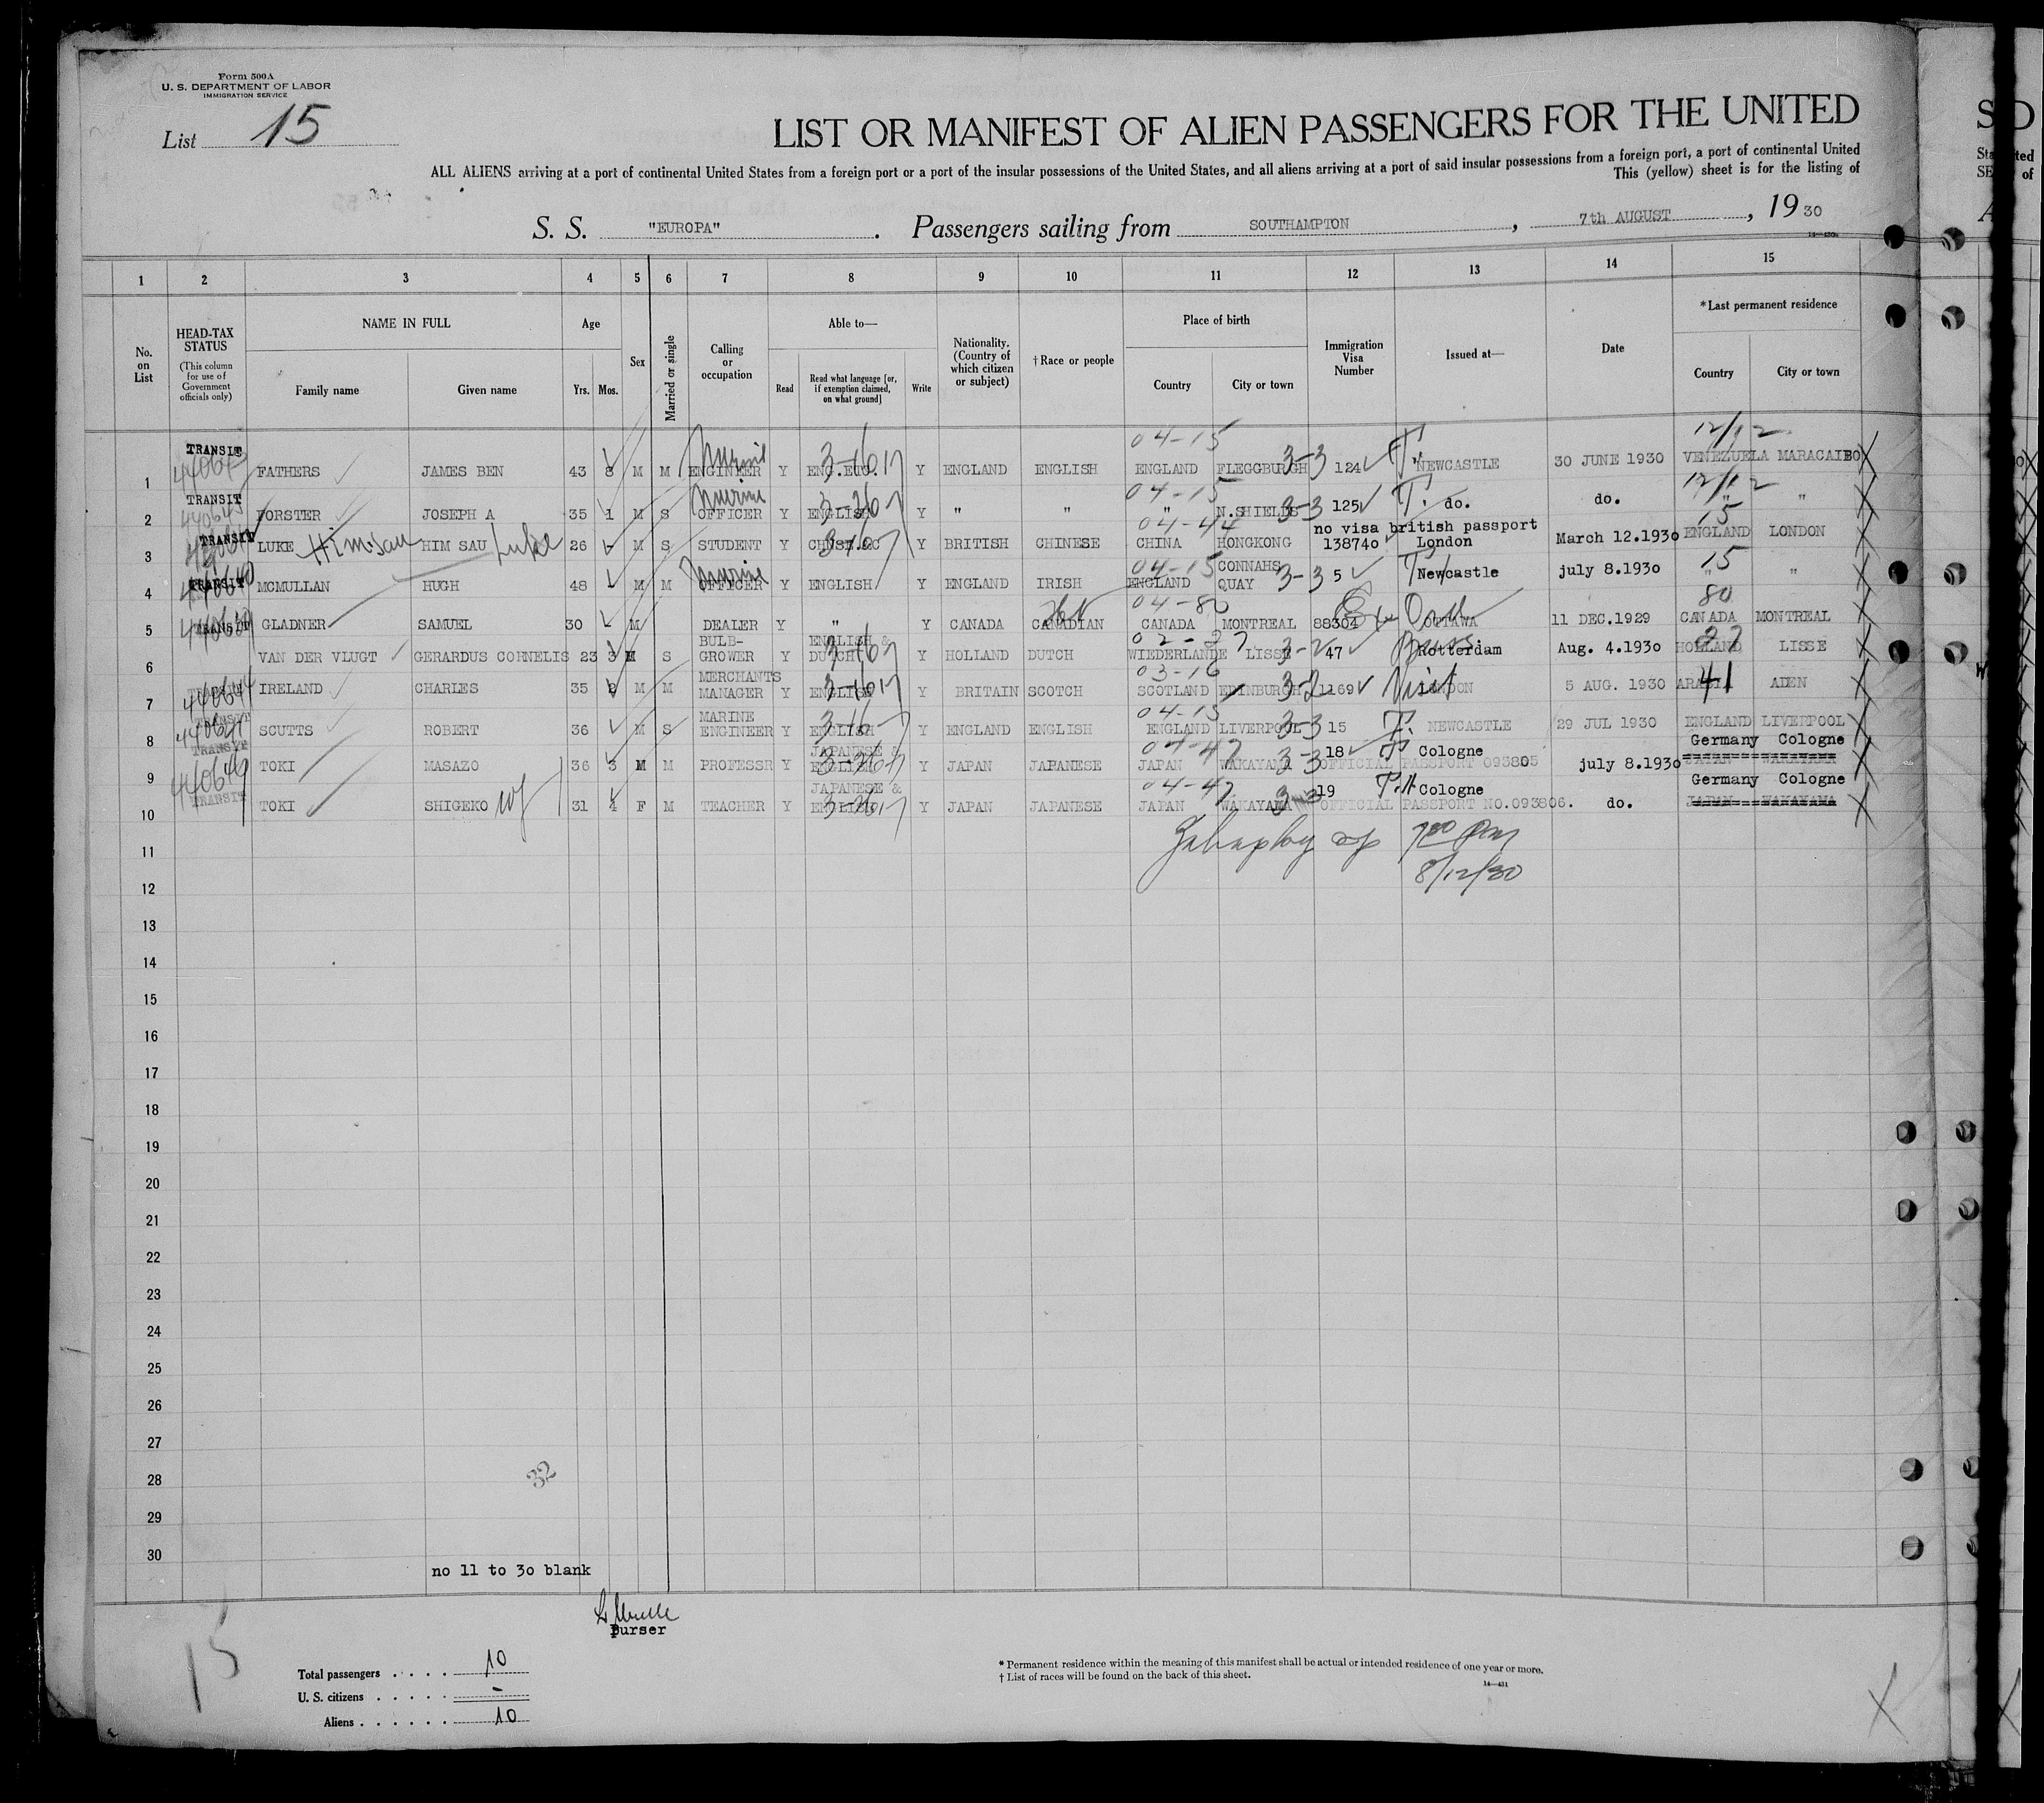 Form 500A
U. S. DEPARTMENT OF LABOR
IMMIGRATION SERVICE
List 15
LIST OR MANIFEST OF ALIEN PASSENGERS FOR THE UNITED
ALL ALIENS arriving at a port of continental United States from a foreign port or a port of the insular possessions of the United States, and all aliens arriving at a port of said insular possessions from a foreign port, a port of continental United
This (yellow) sheet is for the listing of
S. S. "EUROPA". Passengers sailing from SOUTHAMPTON, 7th AUGUST, 1930
1 2 3 4 5 6 7 8 9 10 11 12 13 14 15
No. on List
HEAD-TAX STATUS (This column for use of Government officials only)
NAME IN FULL Family name Given name
Age Yrs. Mos.
Sex
Married or single
Calling or occupation
Able to— Read Read what language [or, if exemption claimed, on what ground] Write
Nationality. (Country of which citizen or subject)
†Race or people
Place of birth Country City or town
Immigration Visa Number
Issued at—
Date
*Last permanent residence Country City or town
1 TRANSIT FATHERS JAMES BEN 43 8 M M ENGINEER Y ENG. Y ENGLAND ENGLISH 04-15 ENGLAND FLEGGBURGH 3-3 124 T. NEWCASTLE 30 JUNE 1930 12/12 VENEZUELA MARACAIBO
2 TRANSIT FORSTER JOSEPH A 35 1 M S Marine OFFICER Y ENGLISH Y " " 04-15 " N.SHIELDS 3-3 125 T. do. do. 12/12 " "
3 TRANSIT LUKE Him-Sau HIM SAU Luke 26 - M S STUDENT Y Y BRITISH CHINESE 04-44 CHINA HONGKONG no visa british passport 138740 London March 12.1930 15 ENGLAND LONDON
4 TRANSIT MCMULLAN HUGH 48 - M M Marine OFFICER Y ENGLISH Y ENGLAND IRISH 04-15 ENGLAND CONNAHS QUAY 3-3 5 T. Newcastle july 8.1930 15 " "
5 TRANSIT GLADNER SAMUEL 30 - M DEALER Y " Y CANADA CANADIAN 04-80 CANADA MONTREAL 88304 OTTAWA 11 DEC.1929 80 CANADA MONTREAL
6 VAN DER VLUGT GERARDUS CORNELIS 23 3 M S BULB-GROWER Y ENGLISH & DUTCH Y HOLLAND DUTCH 02-27 WIEDERLANDE LISSE 3-2 47 Rotterdam Aug. 4.1930 27 HOLLAND LISSE
7 TRANSIT IRELAND CHARLES 35 2 M M MERCHANTS MANAGER Y ENGLISH Y BRITAIN SCOTCH 03-16 SCOTLAND EDINBURGH 3-2 1169 Visit LONDON 5 AUG. 1930 41 ADEN
8 TRANSIT SCUTTS ROBERT 36 M S MARINE ENGINEER Y ENGLISH Y ENGLAND ENGLISH 04-15 ENGLAND LIVERPOOL 3-3 15 T. NEWCASTLE 29 JUL 1930 ENGLAND LIVERPOOL
9 TRANSIT TOKI MASAZO 36 3 M M PROFESSR Y JAPANESE & ENGLISH Y JAPAN JAPANESE 04-47 JAPAN WAKAYAMA 3-3 18 Cologne OFFICIAL PASSPORT 093805 july 8.1930 Germany Cologne
10 TRANSIT TOKI SHIGEKO wf 31 4 F M TEACHER Y JAPANESE & ENGLISH Y JAPAN JAPANESE 04-47 JAPAN WAKAYAMA 19 Cologne OFFICIAL PASSPORT NO.093806. do. Germany Cologne
11
8/12/30
12
13
14
15
16
17
18
19
20
21
22
23
24
25
26
27
28
32
29
30
no 11 to 30 blank
purser
15
Total passengers . . . . 10
U. S. citizens . . . . . -
Aliens . . . . . . 10
* Permanent residence within the meaning of this manifest shall be actual or intended residence of one year or more.
† List of races will be found on the back of this sheet.